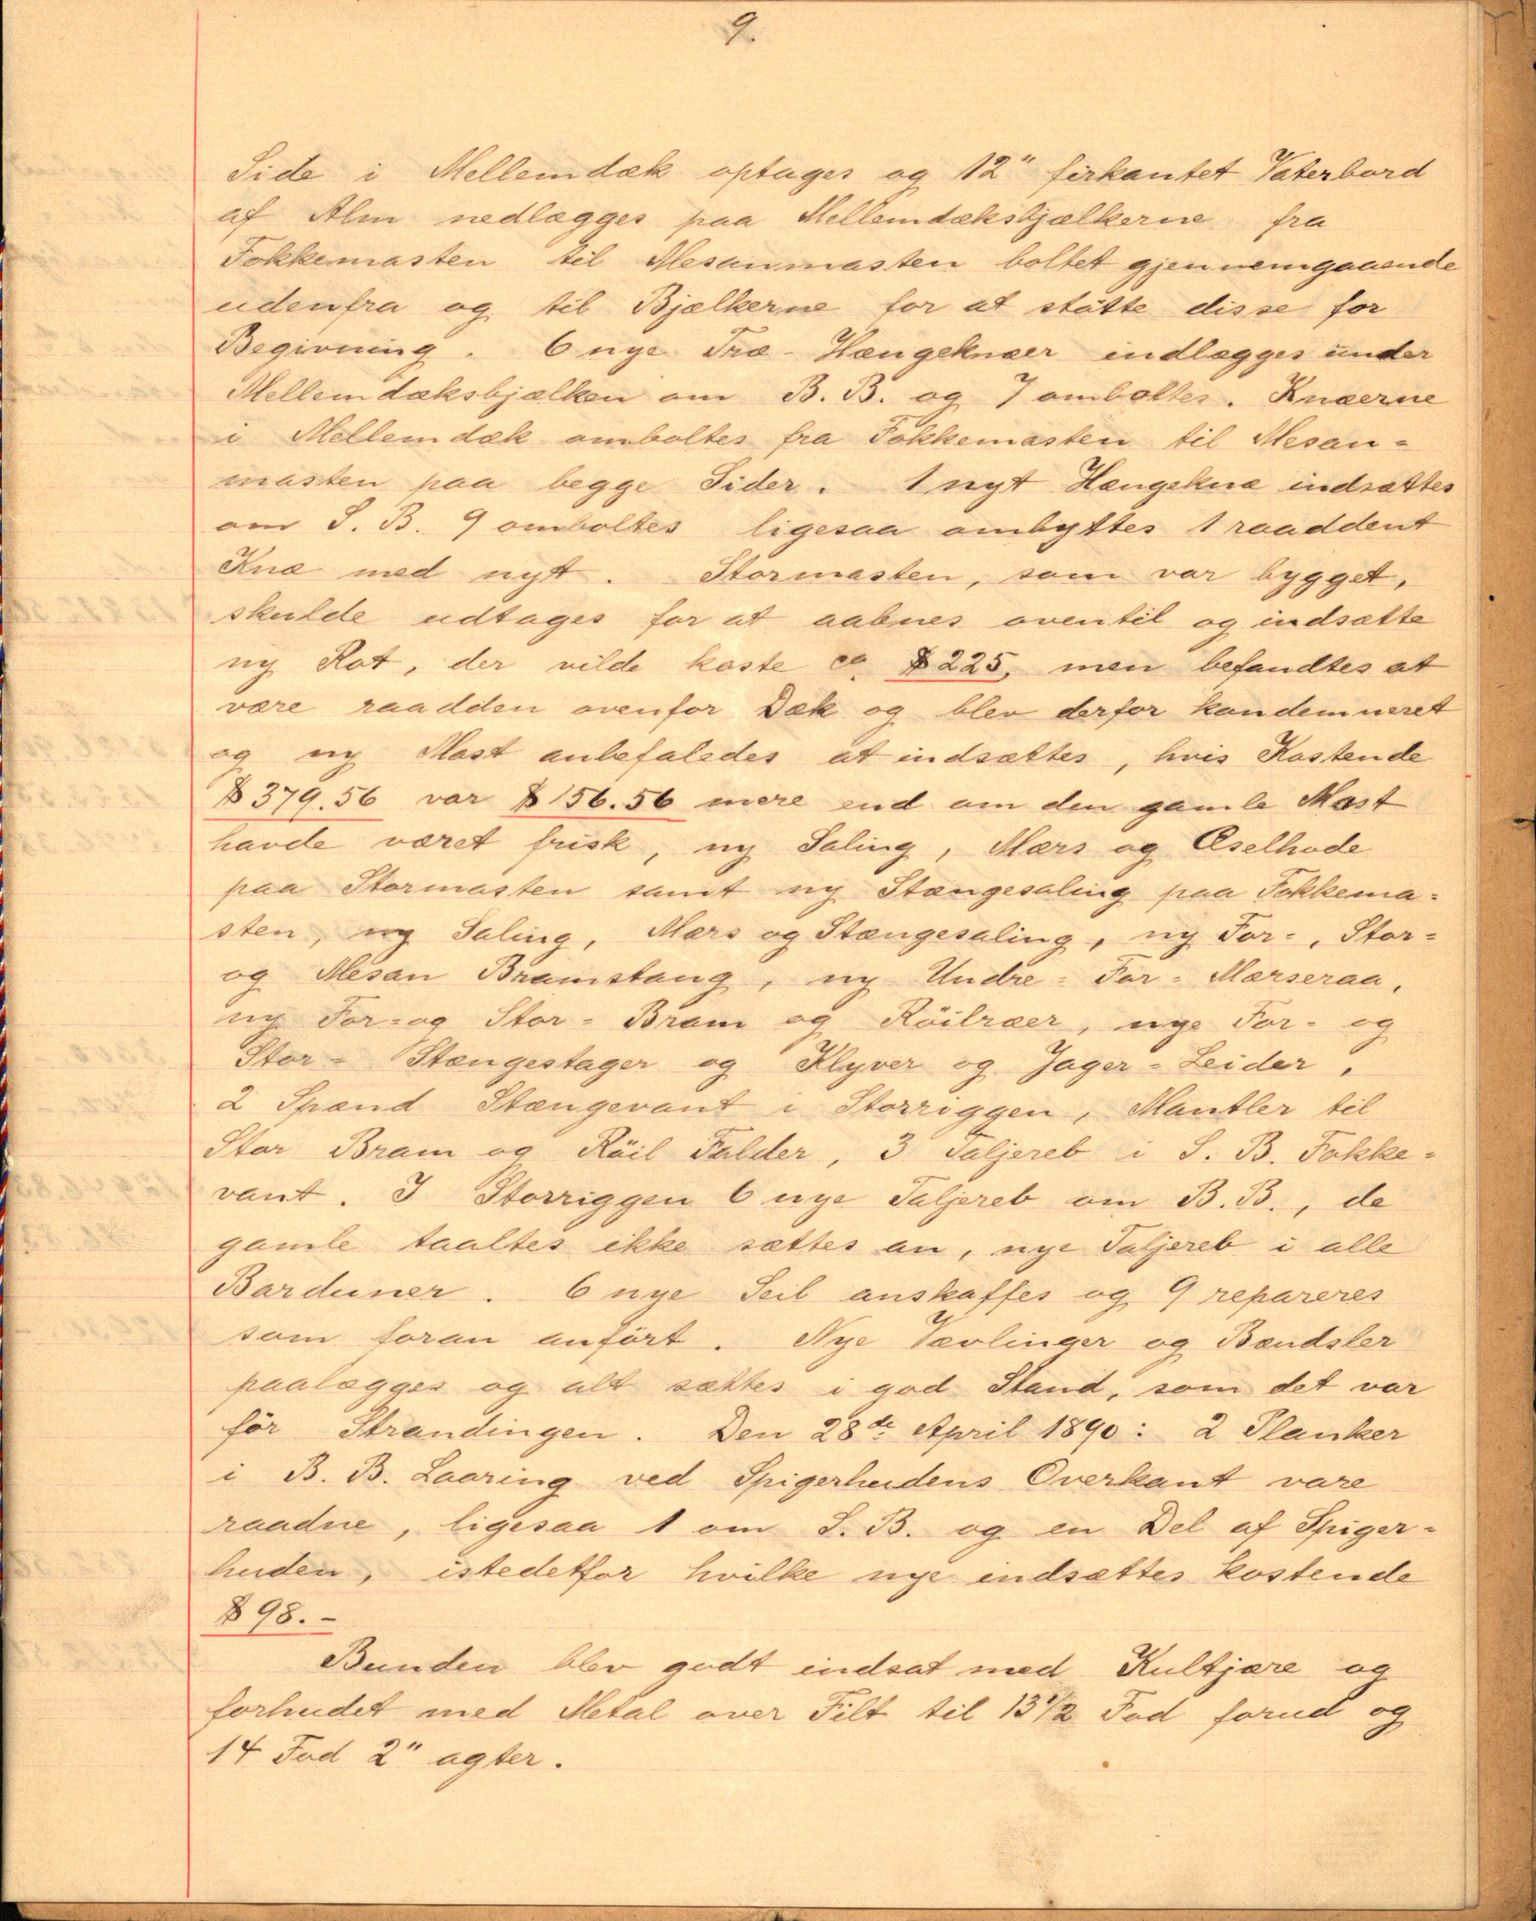 9.
Side i Mellemdæk optages og 12" firkantet Vaterbord
af Alm nedlægges paa Mellemdæksbjælkerne fra
Fokkemasten til Mesanmasten boltet gjennemgaaende
udenfra og til Bjælkerne for at støtte disse for
Begivning. 6 nye Træ-Hængeknæer indlægges under
Mellemdæksbjælken om B. B. og 7 omboltes. Knæerne
i Mellemdæk omboltes fra Fokkemasten til Mesan=
masten paa begge Sider. 1 nyt Hængeknæ indsættes
om S. B. 9 omboltes ligesaa ombyttes 1 raaddent
Knæ med nyt. Stormasten, som var bygget,
skulde udtages for at aabnes oventil og indsætte
ny Rot, der vilde koste ca. $225, men befandtes at
være raadden ovenfor Dæk og blev derfor kondemneret
og ny Mast anbefaledes at indsættes, hvis Kostende
$379.56 var $156.56 mere end om den gamle Mast
havde været frisk, ny Saling, Mærs og Æselhode
paa Stormasten samt ny Stængesaling paa Fokkema=
sten, ny Saling, Mærs og Stængesaling, ny For-, Stor=
og Mesan Bramstang, ny Undre-For-Mærseraa,
ny For- og Stor-Bram og Röilræer, nye For- og
Stor-Stængestager og Klyver og Jager-Leider,
2 Spænd Stængevant i Storriggen, Mantler til
Stor Bram og Röil Falder, 3 Taljereb i S. B. Fokke=
vant. I Storriggen 6 nye Taljereb om B.B., de
gamle taaltes ikke sættes an, nye Taljereb i alle
Barduner. 6 nye Seil anskaffes og 9 repareres
som foran anfört. Nye Vævlinger og Bændsler
paalægges og alt sættes i god Stand, som det var
för Strandingen. Den 28de April 1890: 2 Planker
i B. B. Laaring ved Spigerhudens Overkant vare
raadne, ligesaa 1 om S. B. og en Del af Spiger=
huden, istedetfor hvilke nye indsættes kostende
$98.-
Bunden blev godt indsat med Kultjære og
forhudet med Metal over Filt til 13 1/2 Fod forud og
14 Fod 2" agter.